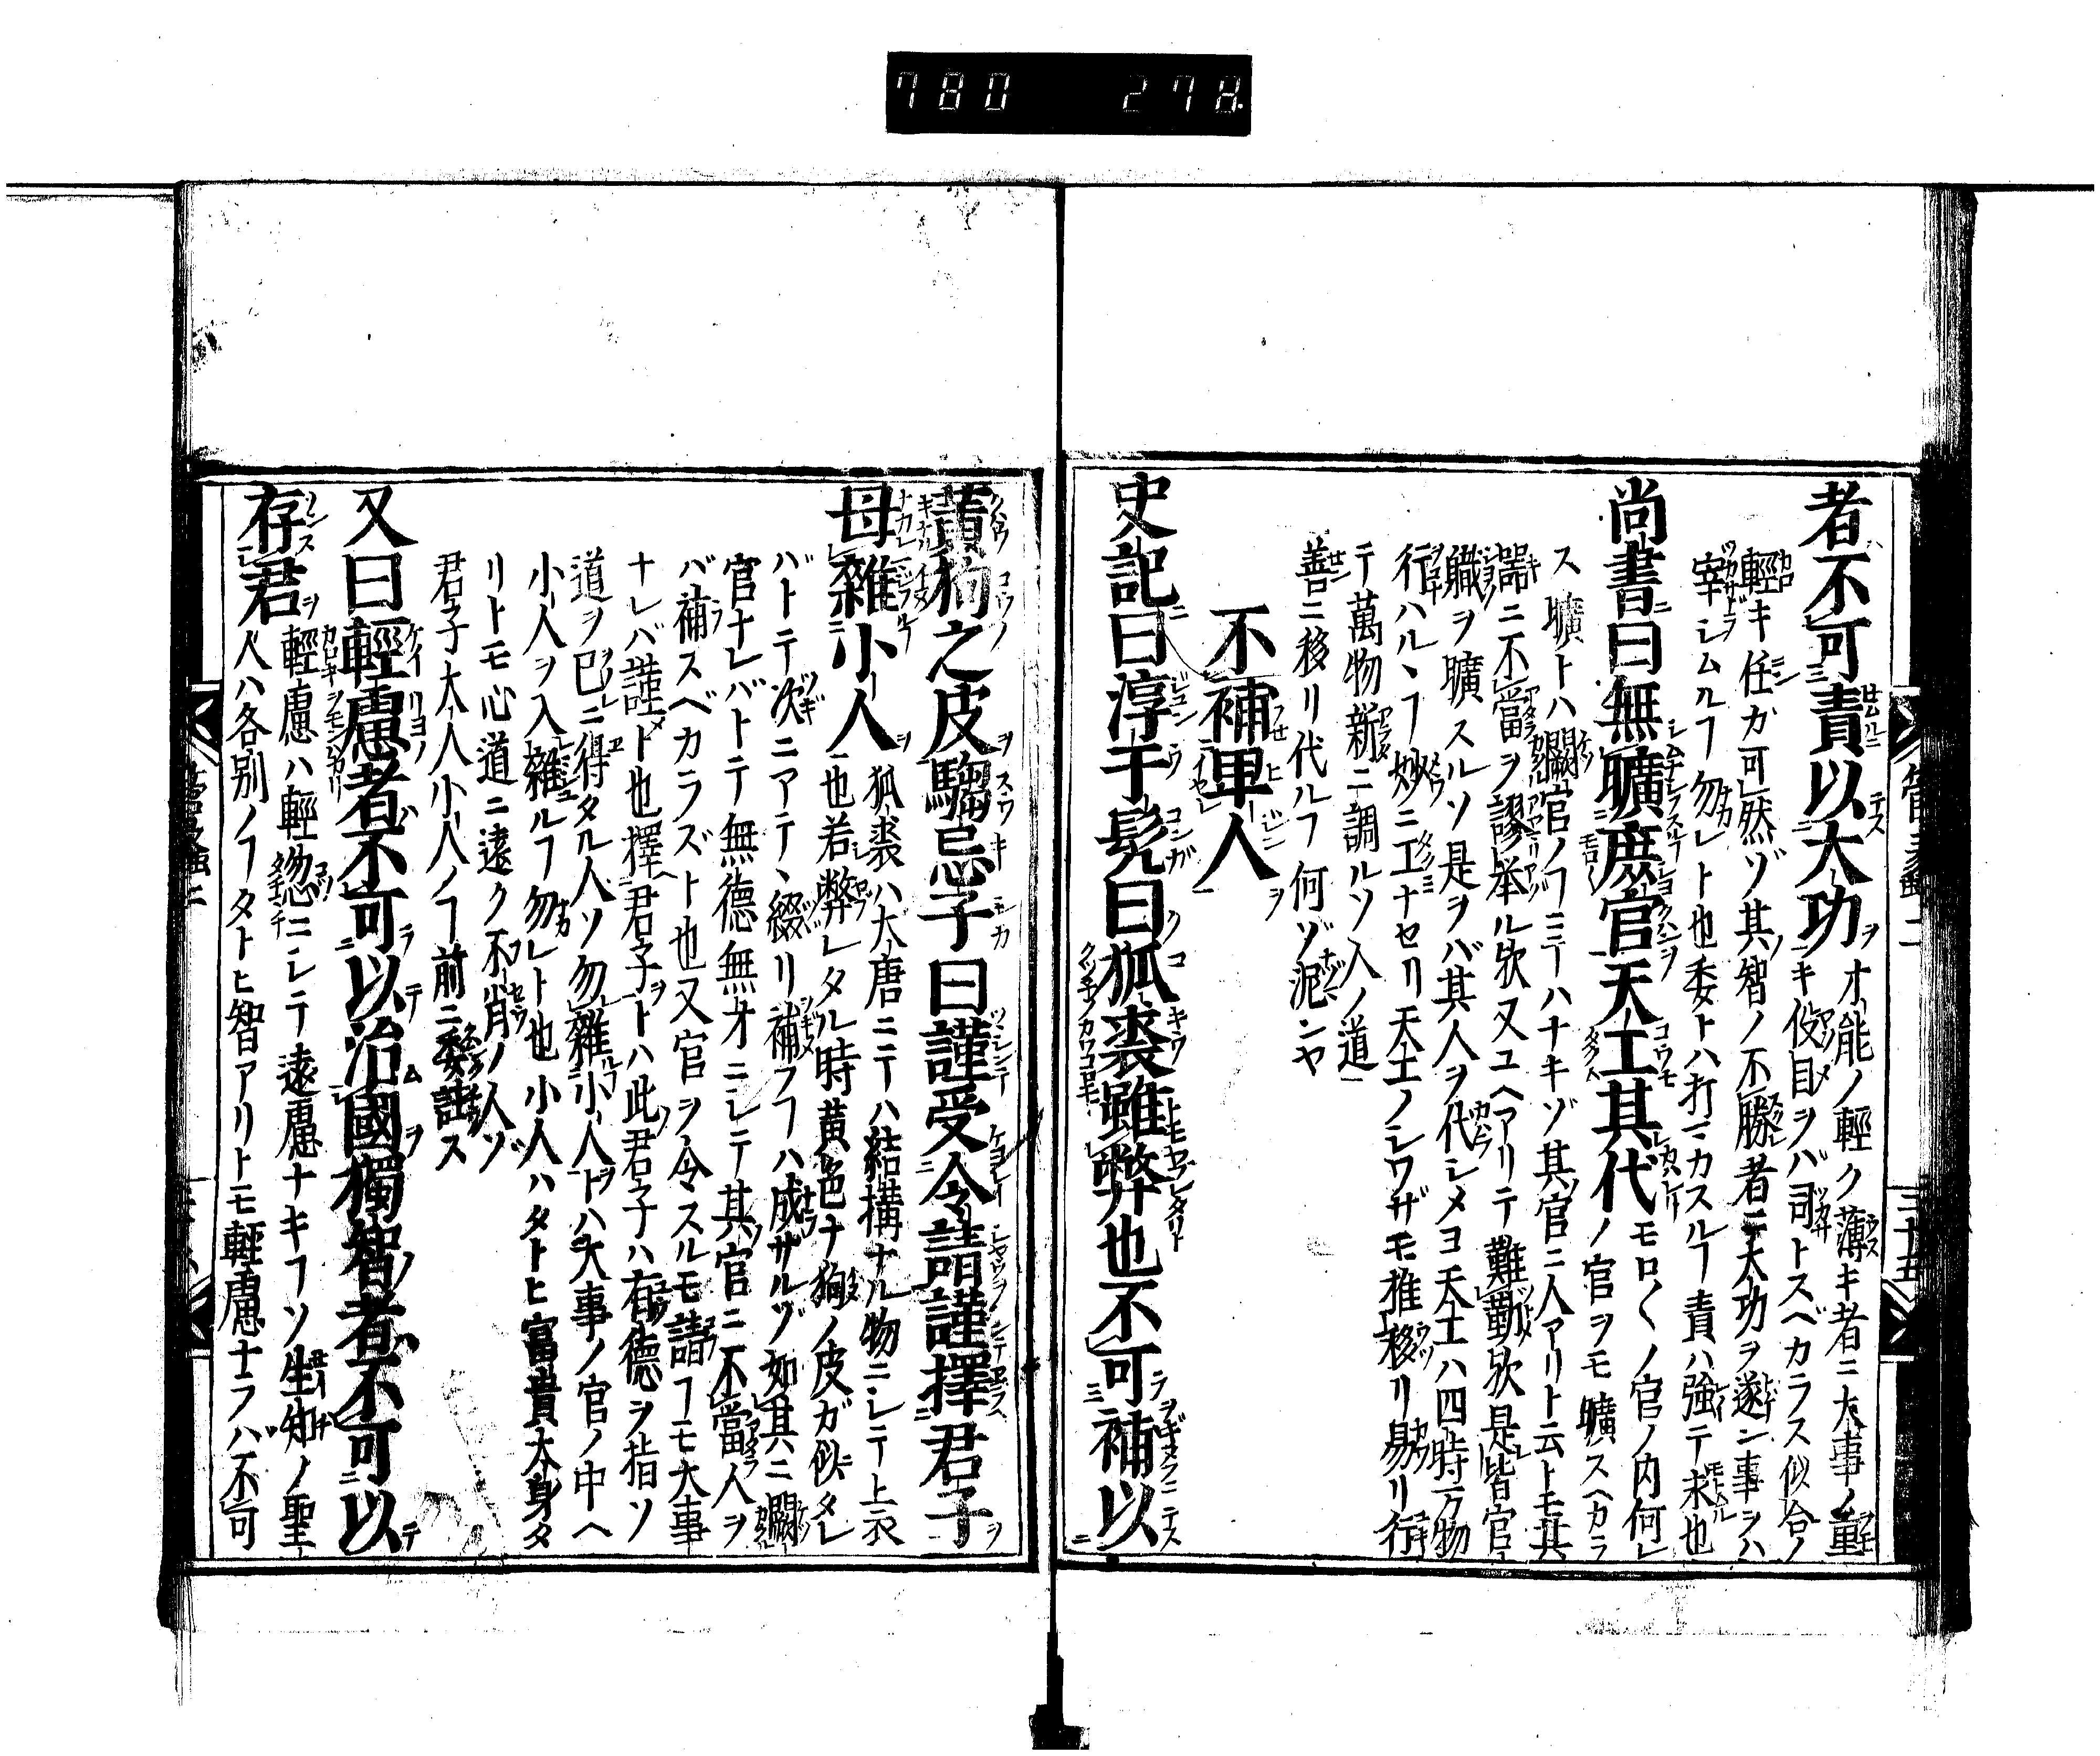 780 278
者不可責以大功
オ能ノ輕ク薄キ者ニ大事ノ重
キ役目ヲバ司トスベカラス似合ノ
輕キ任カ可然ゾ其智ノ不勝者ニ大功ヲ遂ン事ヲハ
宰シムルヿ勿レト也委トハ打マカスルヿ責ハ強テ求也
尚書曰無曠庶官天工其代
モロ〱ノ官ノ内何
ノ官ヲモ曠スヘカラ
ス曠トハ闕官ノヿミニハナキゾ其官ニ人アリト云トモ其
器ニ不當ヲ謬舉ル欤又ユヘアリテ難勤欤是皆官
職ヲ曠スルソ是ヲバ其人ヲ代シメヨ天工ハ四時万物
行ハルヽヿ妙ニエナセリ天工ノシワザモ推移リ易リ行
テ萬物新ニ調ルソ人ノ道
善ニ移リ代ルヿ何ゾ泥ンヤ
不補卑人
史記曰淳于髠曰狐裘雖弊也不可補以
黄狗之皮騶忌子曰謹受令請謹擇君子
毋雜小人
狐裘ハ大唐ニテハ結構ナル物ニシテ上衣
也若弊レタル時黄色ナ狗ノ皮ガ似タレ
バトテ次ニアテヽ綴リ補フヿハ成ザルゾ如其ニ闕
官ナレバトテ無德無オニシテ其官ニ不當人ヲ
バ補スベカラズト也又官ヲ令スルモ請フモ大事
ナレバ謹メト也擇君子トハ此君子ハ有德ヲ指ソ
道ヲ已ニ得タル人ソ勿雜小人トハ大事ノ官ノ中ヘ
小人ヲ入雜ルヿ勿レト也小人ハタトヒ富貴大身タ
リトモ心道ニ遠ク不肖ノ人ゾ
君子大人小人ノヿ前ニ委註ス
又曰輕慮者不可以治國獨智者不可以
存君
輕慮ハ輕忽ニシテ遠慮ナキヿソ生知ノ聖
人ハ各別ノヿタトヒ智アリトモ輕慮ナラハ不可
三十五